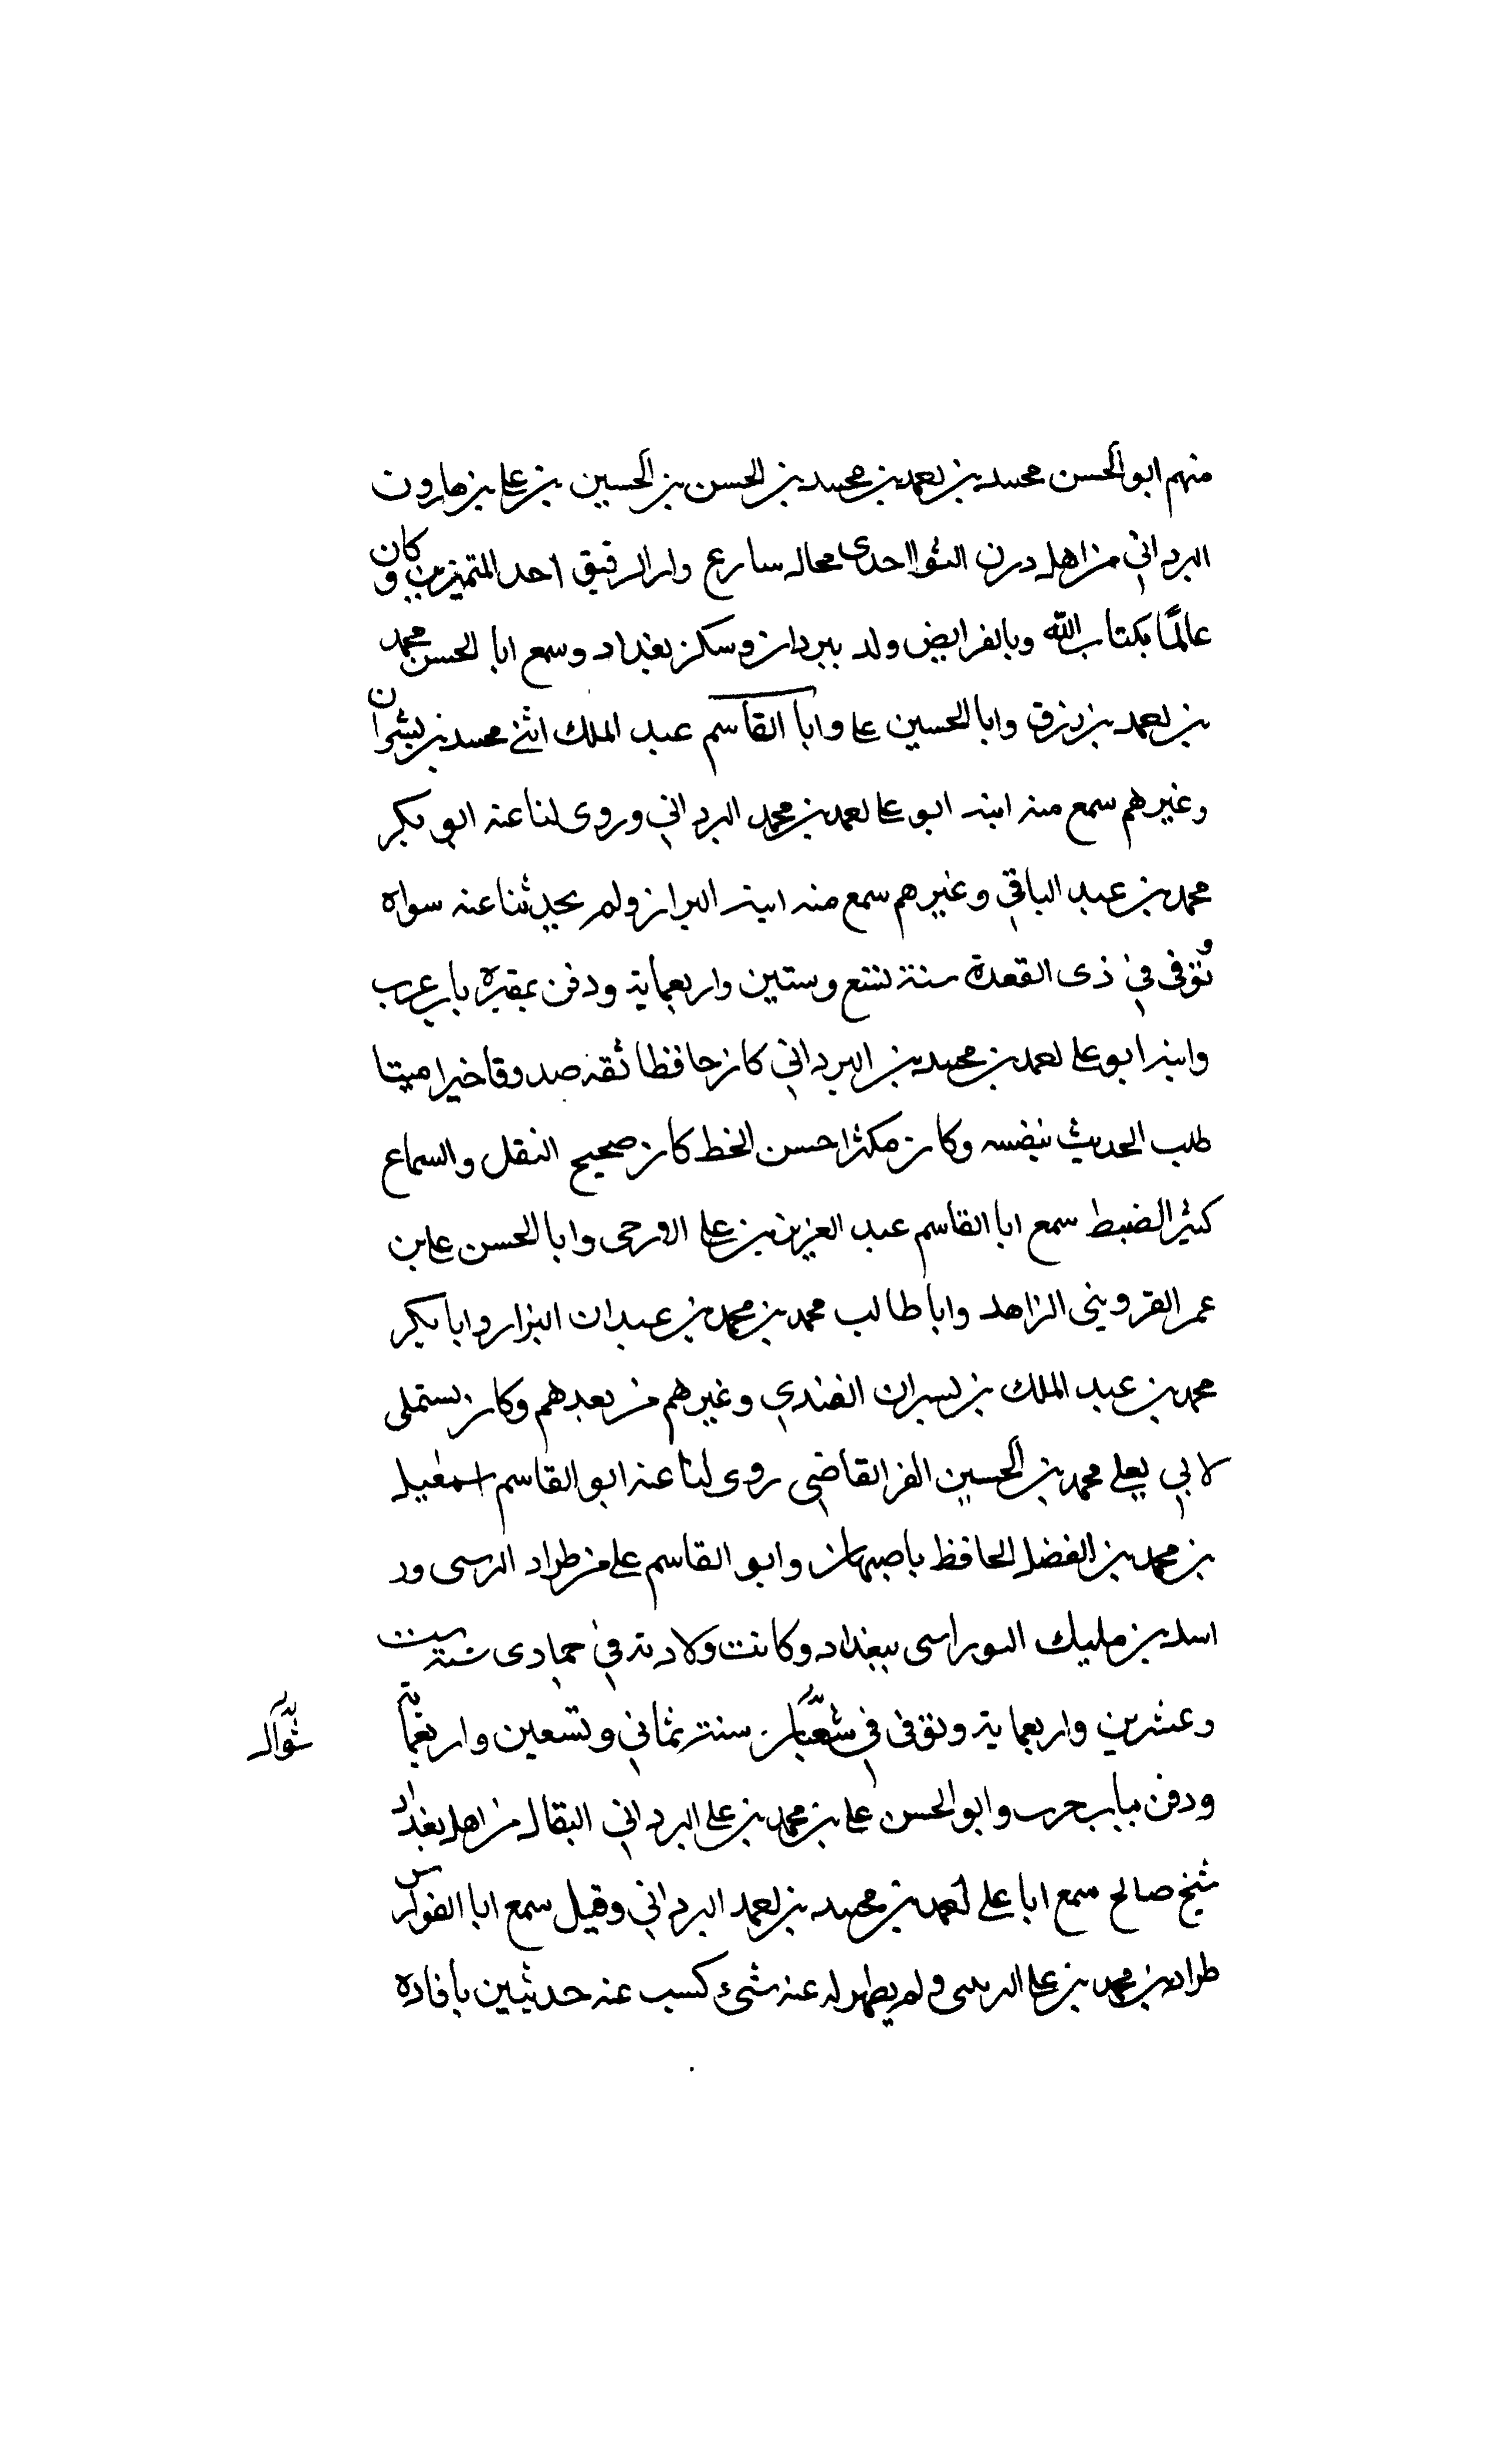 منهم ابو الحسن محمد بن احمد بن محمد بن الحسن بن الحسين بن علي بن هارون
البرداني من اهل درن التوا احدى محال سارع دار الرقيق احد المتميزين وكان
عالمًا بكتاب الله وبالفرايض ولد ببردان وسكن بغداد وسمع ابا الحسن محمد
بن احمد بن رزق وابا الحسين علي وابا القاسم عبد الملك ابني محمد بن بشران
وغيرهم سمع منه ابنه ابو علي احمد بن محمد البرداني وروى لنا عنه ابو بكر
محمد بن عبد الباقي وغيرهم سمع منه ابنه البزاز ولم يحدثنا عنه سواه
وتوفى في ذى القعدة سنة تسع وستين واربعماية ودفن بمقبرة باب حرب
وابنه ابو علي احمد بن محمد بن البرداني كان حافظا ثقة صدوقا خيرا ميتا
طلب الحديث بنفسه وكان مكثرا حسن الخط كان صحيح النقل والسماع
كثير الضبط سمع ابا القاسم عبد العزيز بن علي الارجى وابا الحسن علي بن
عمر القزويني الزاهد وابا طالب محمد بن محمد بن عبدان البزار وابا بكر
محمد بن عبد الملك بن بسران القندي وغيرهم من بعدهم وكان يستملى
لابي يعلي محمد بن الحسين الفرا القاضي روى لنا عنه ابو القاسم اسمعيل
بن محمد بن الفضل الحافظ باصبهان وابو القاسم علي من طراد الرسى ود
اسد بن مليك البوراسى ببغداد وكانت ولادته في جمادى سنة ست
وعشرين واربعماية وتوفى في شعبان سنة ثماني وتسعين واربعماية
شوال
ودفن بباب حرب وابو الحسن علي بن محمد بن علي البرداني البقال من اهل بغداد
شيخ صالح سمع ابا علي احمد بن محمد بن احمد البرداني وقيل سمع ابا الفوارس
طراد بن محمد بن علي الرسى ولم يظهر له عنه شئ كتب عنه حديثين بافاده